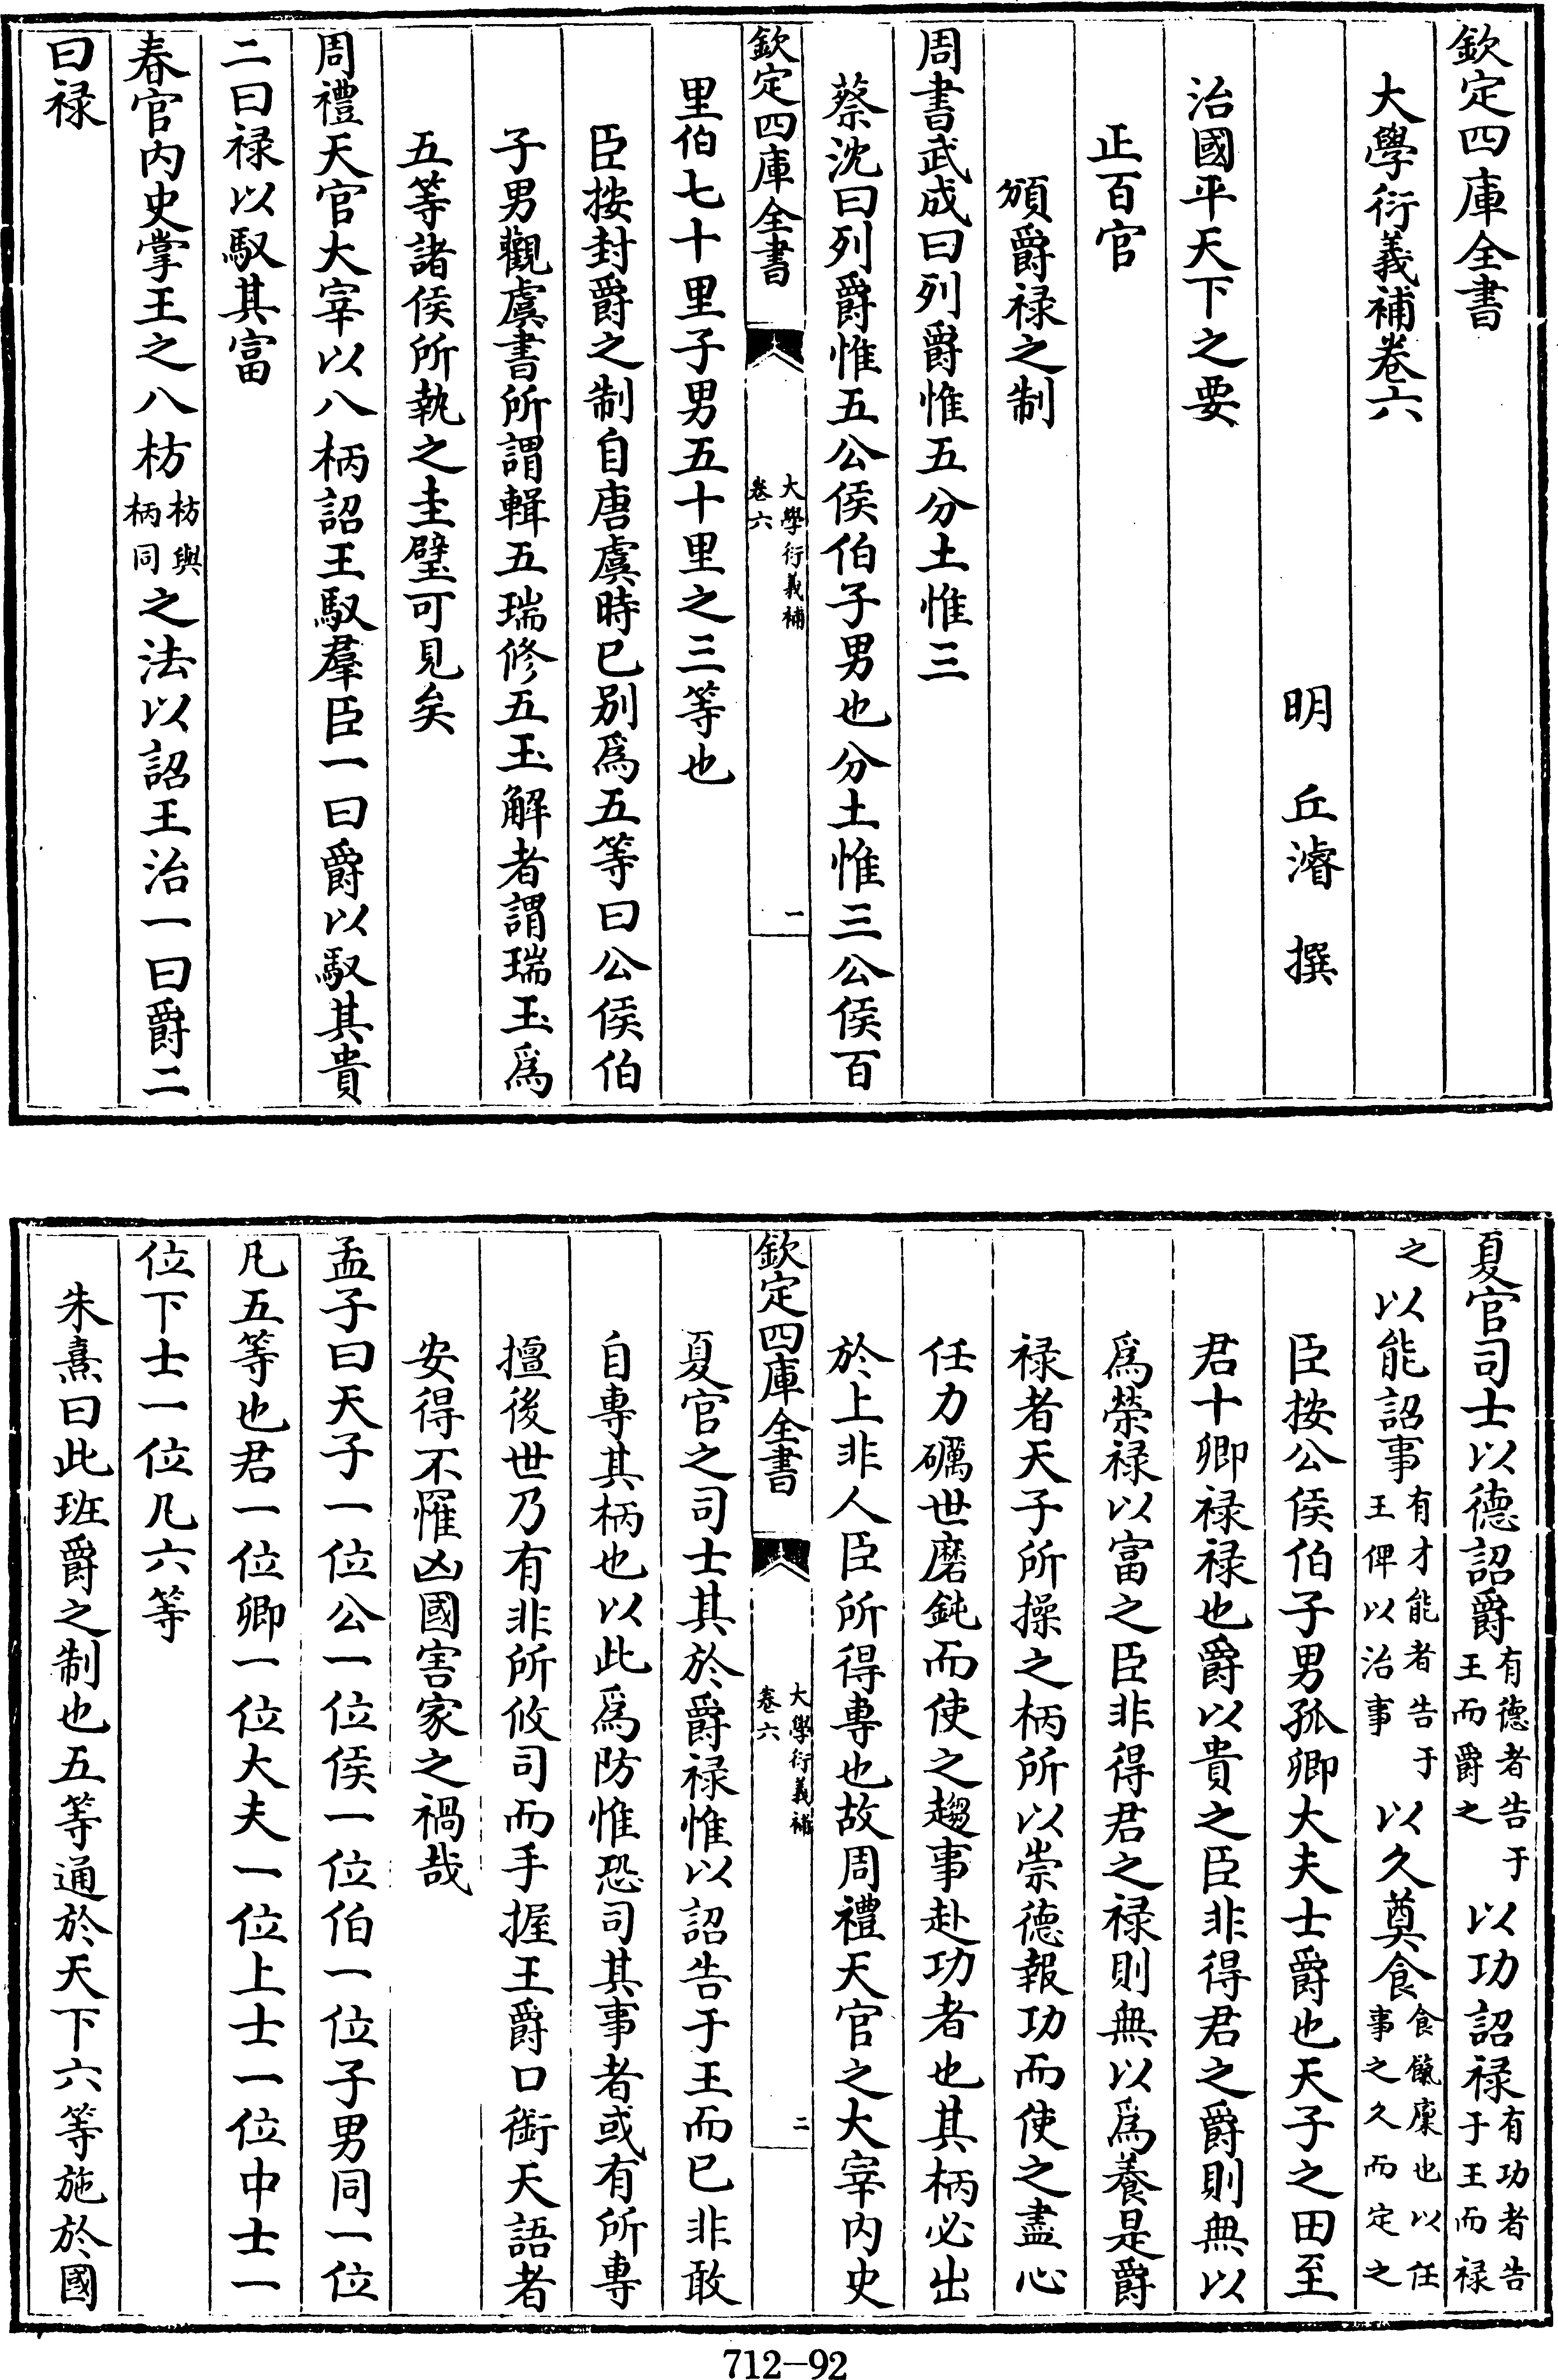 欽定四庫全書
大學衍義補卷六
明 丘濬 撰
治國平天下之要
正百官
頒爵禄之制
周書武成曰列爵惟五分土惟三
蔡沈曰列爵惟五公侯伯子男也分土惟三公侯百
欽定四庫全書
大學衍義補
卷六
一
里伯七十里子男五十里之三等也
臣按封爵之制自唐虞時已别爲五等曰公侯伯
子男觀虞書所謂輯五瑞修五玉解者謂瑞玉爲
五等諸侯所執之圭璧可見矣
周禮天官大宰以八柄詔王馭羣臣一曰爵以馭其貴
二曰禄以馭其富
春官内史掌王之八枋枋與柄同之法以詔王治一曰爵二
曰禄
夏官司士以德詔爵有德者告于王而爵之以功詔禄有功者告于王而禄
之以能詔事有才能者告于王俾以治事以久奠食食餼廩也以任事之久而定之
臣按公侯伯子男孤卿大夫士爵也天子之田至
君十卿禄禄也爵以貴之臣非得君之爵則無以
爲榮禄以富之臣非得君之禄則無以爲養是爵
禄者天子所操之柄所以崇德報功而使之盡心
任力礪世磨鈍而使之趨事赴功者也其柄必出
於上非人臣所得專也故周禮天官之大宰内史
欽定四庫全書
大學衍義補
卷六
二
夏官之司士其於爵禄惟以詔告于王而已非敢
自專其柄也以此爲防惟恐司其事者或有所專
擅後世乃有非所攸司而手握王爵口銜天語者
安得不罹凶國害家之禍哉
孟子曰天子一位公一位侯一位伯一位子男同一位
凡五等也君一位卿一位大夫一位上士一位中士一
位下士一位凡六等
朱熹曰此班爵之制也五等通於天下六等施於國
712-92